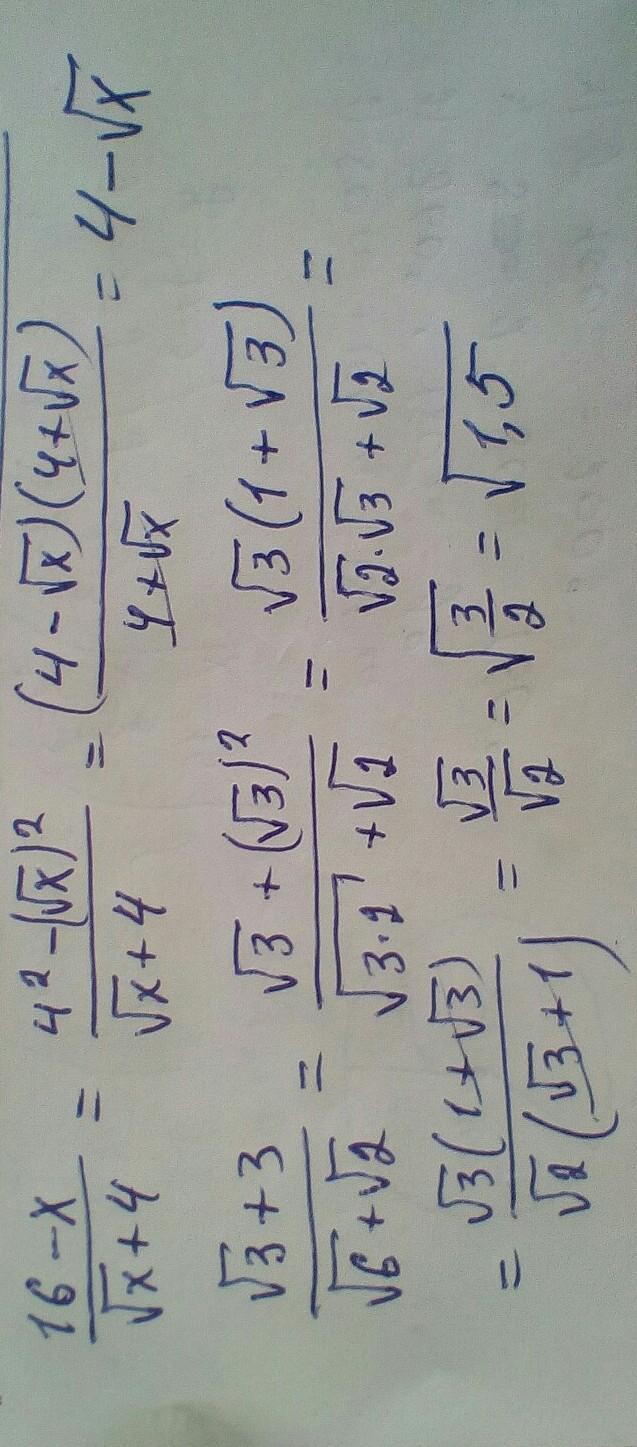 (16-x)/(√x+4) = (4²-(√x)²)/(√x+4) = ((4-√x)(4+√x))/(4+√x) = 4-√x
(√3+3)/(√6+√2) = (√3+(√3)²)/(√(3·2)+√2) = (√3(1+√3))/(√2·√3+√2) =
= (√3(1+√3))/(√2(√3+1)) = √3/√2 = √(3/2) = √1,5